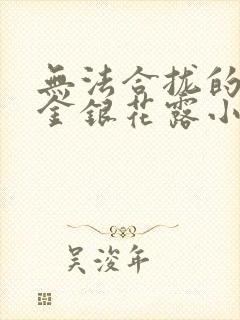 無法合拢的
金銀花露小
吳浚年